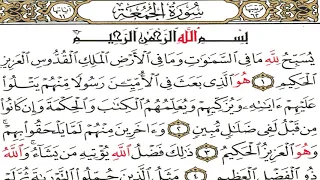 سُورَةُ الجُمُعَةِ
بِسْمِ اللَّهِ الرَّحْمَٰنِ الرَّحِيمِ
يُسَبِّحُ لِلَّهِ مَا فِى السَّمَٰوَٰتِ وَمَا فِى الْأَرْضِ الْمَلِكِ الْقُدُّوسِ الْعَزِيزِ
الْحَكِيمِ ١ هُوَ الَّذِى بَعَثَ فِى الْأُمِّيِّينَ رَسُولًا مِّنْهُمْ يَتْلُوا
عَلَيْهِمْ ءَايَٰتِهِ وَيُزَكِّيهِمْ وَيُعَلِّمُهُمُ الْكِتَٰبَ وَالْحِكْمَةَ وَإِن كَانُوا
مِن قَبْلُ لَفِى ضَلَٰلٍ مُّبِينٍ ٢ وَءَاخَرِينَ مِنْهُمْ لَمَّا يَلْحَقُوا بِهِمْ
وَهُوَ الْعَزِيزُ الْحَكِيمُ ٣ ذَٰلِكَ فَضْلُ اللَّهِ يُؤْتِيهِ مَن يَشَاءُ وَاللَّهُ
ذُو الْفَضْلِ الْعَظِيمِ ٤ مَثَلُ الَّذِينَ حُمِّلُوا التَّوْرَىٰةَ ثُمَّ